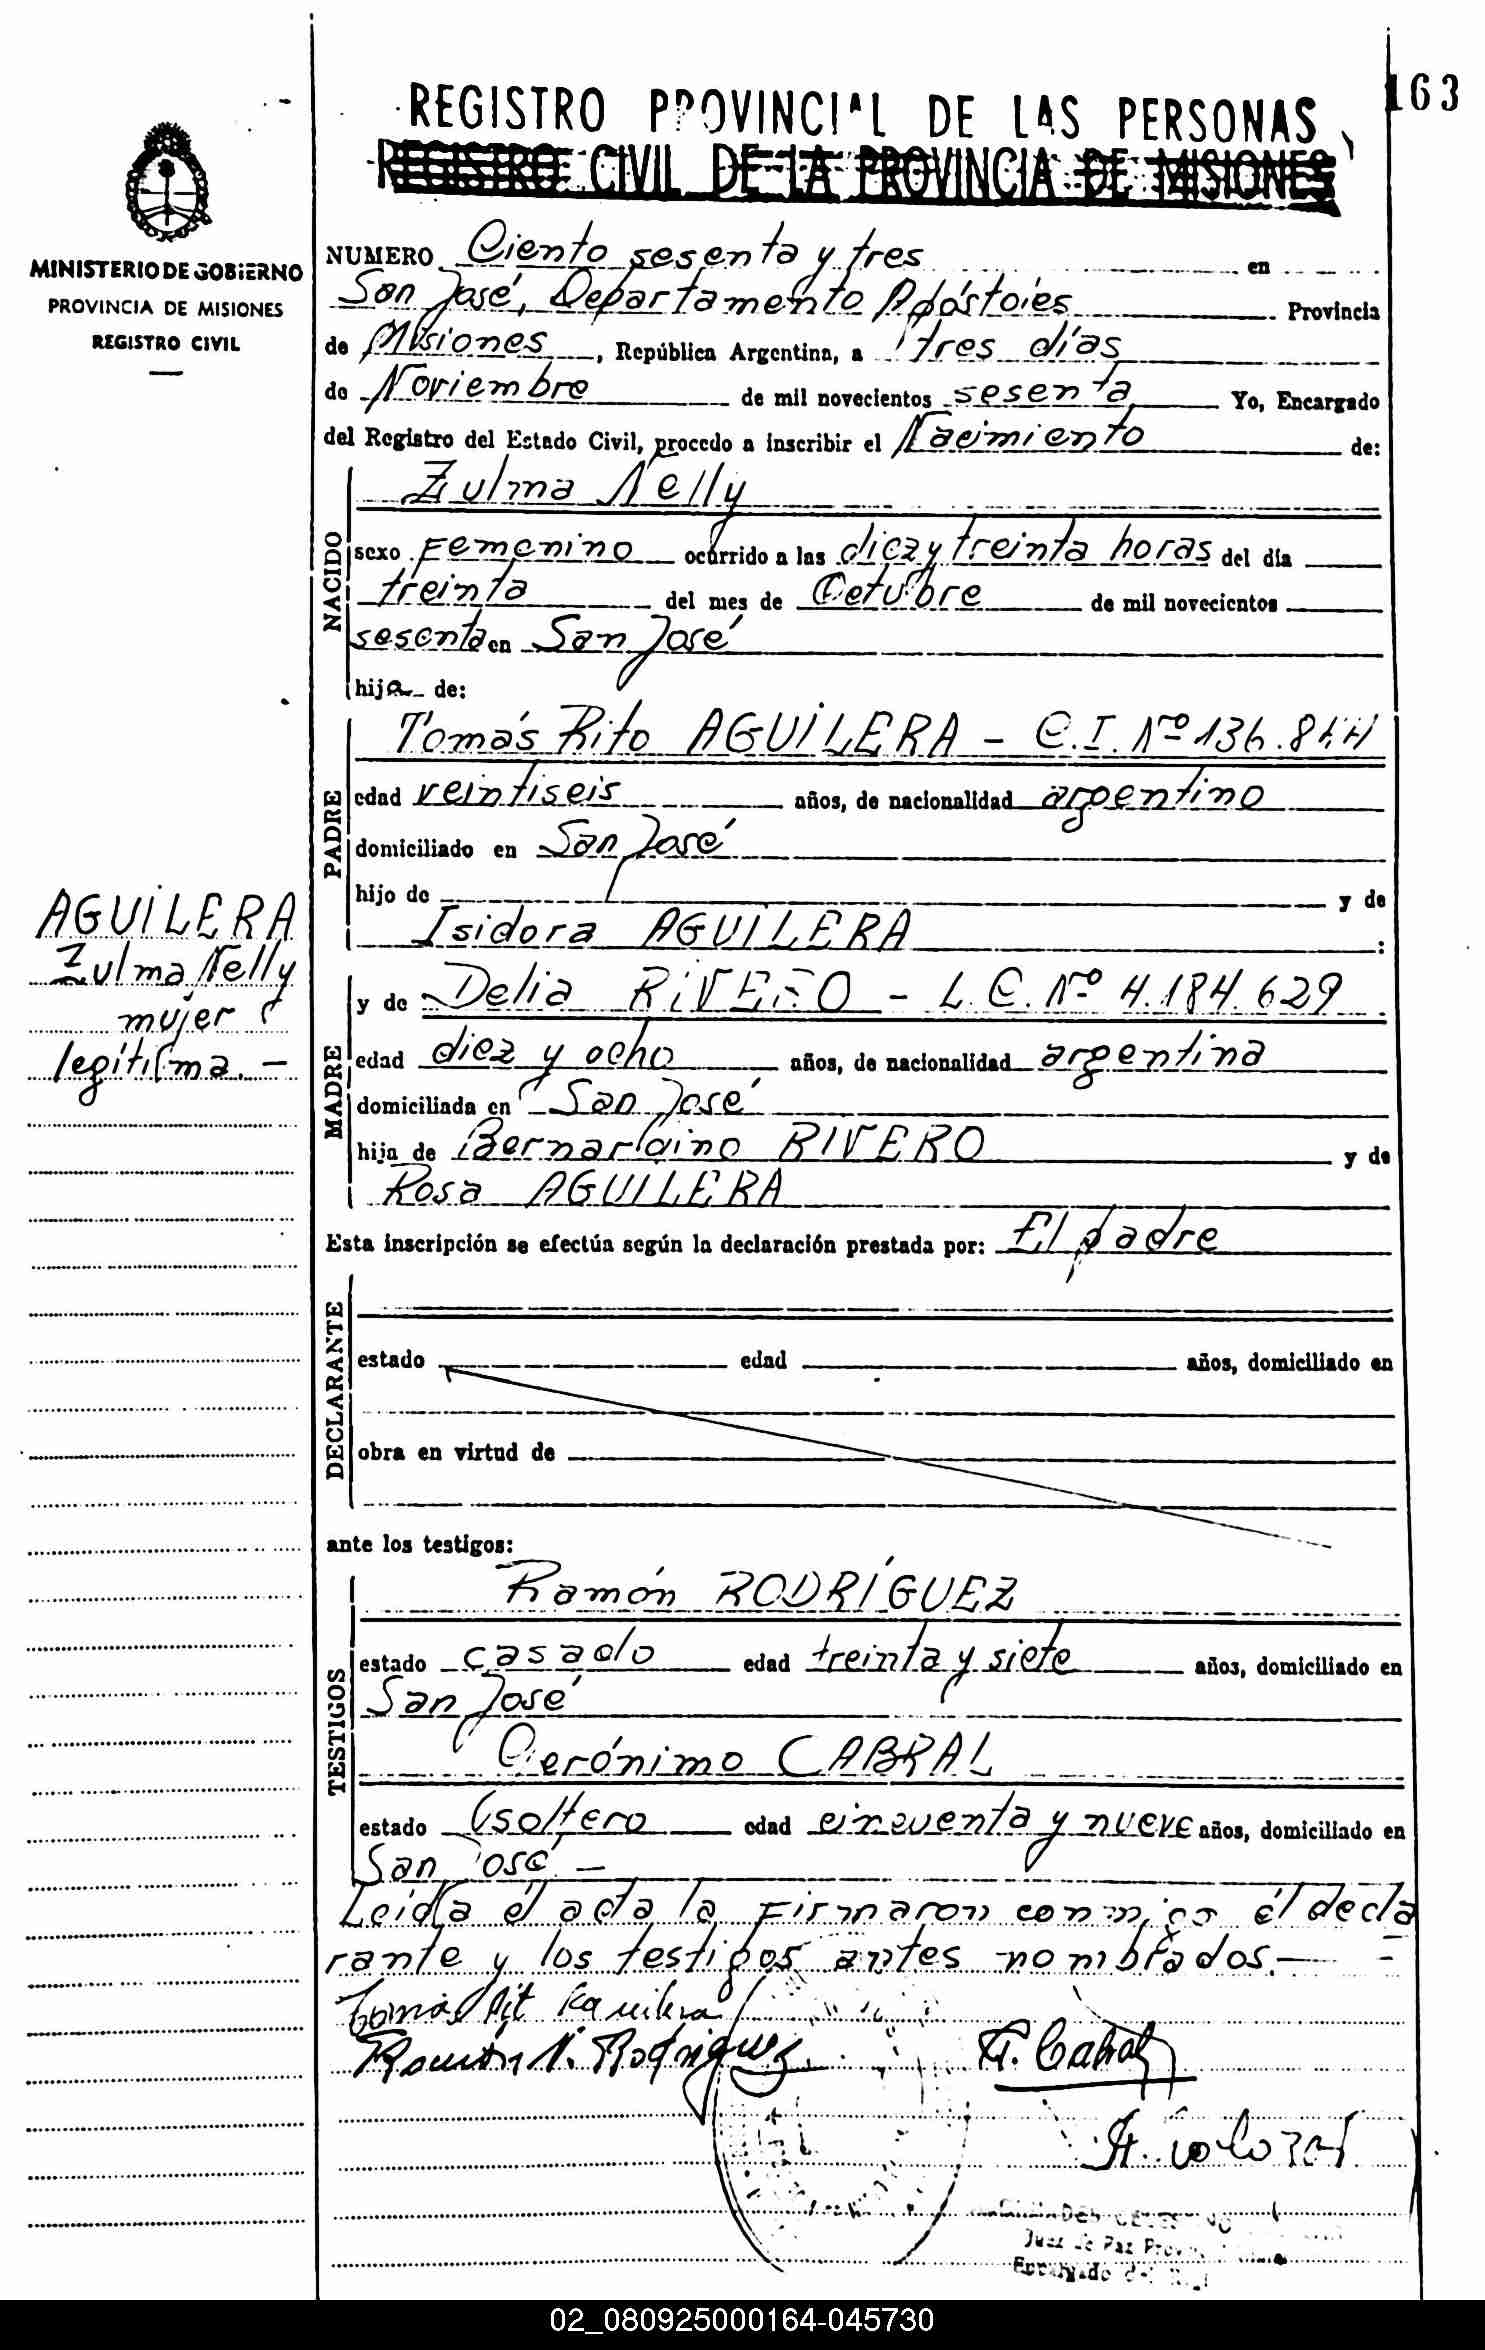 163
REGISTRO PROVINCIAL DE LAS PERSONAS
REGISTRO CIVIL DE LA PROVINCIA DE MISIONES
MINISTERIO DE GOBIERNO
PROVINCIA DE MISIONES
REGISTRO CIVIL
NUMERO Ciento sesenta y tres en
San José, Departamento Apóstoles Provincia
de Misiones, República Argentina, a tres días
de Noviembre de mil novecientos sesenta Yo, Encargado
del Registro del Estado Civil, procedo a inscribir el Nacimiento de:
NACIDO
Zulma Nelly
sexo Femenino ocurrido a las diez y treinta horas del día
treinta del mes de Octubre de mil novecientos
sesenta en San José
hija de:
PADRE
Tomás Rito AGUILERA - C.I. Nº 136.844
edad veintiseis años, de nacionalidad argentino
domiciliado en San José
hijo de y de
Isidora AGUILERA :
AGUILERA
Zulma Nelly
mujer
legítima. -
MADRE
y de Delia RIVERO - L.C. Nº 4.184.629
edad diez y ocho años, de nacionalidad argentina
domiciliada en San José
hija de Bernardino RIVERO y de
Rosa AGUILERA
Esta inscripción se efectúa según la declaración prestada por: El padre
DECLARANTE
estado edad años, domiciliado en
obra en virtud de
ante los testigos:
TESTIGOS
Ramón RODRÍGUEZ
estado casado edad treinta y siete años, domiciliado en
San José
Gerónimo CABRAL
estado soltero edad cincuenta y nueve años, domiciliado en
San José. -
Leída el acta la firmaron conmigo él decla
rante y los testigos antes nombrados. -
Tomás Rit Aguilera
Ramón N. Rodriguez G. Cabral
Juez de Paz
Encargado del
02_080925000164-045730